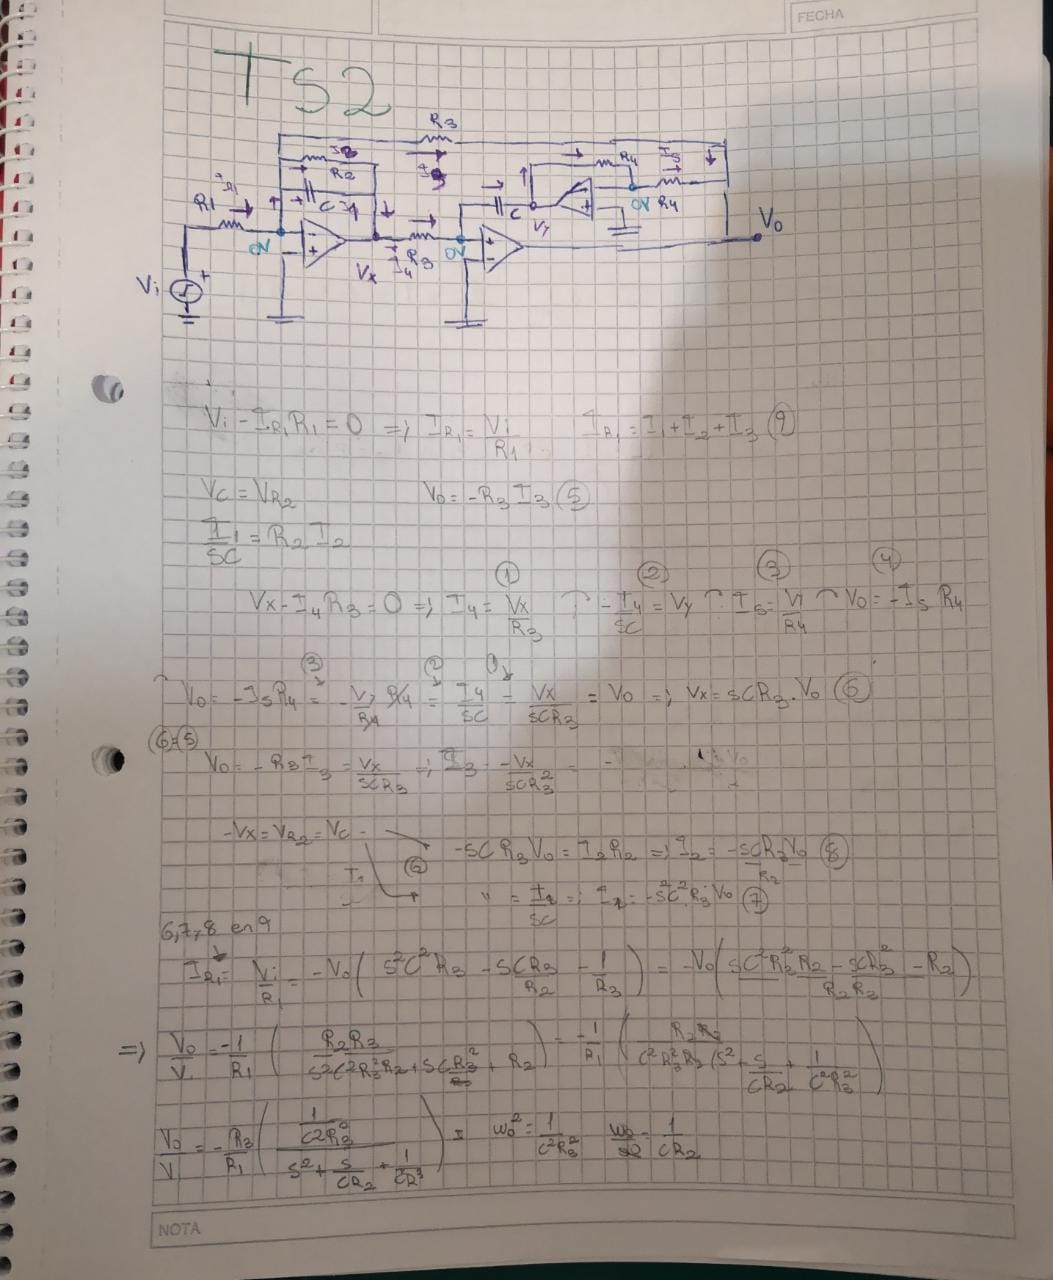 FECHA
TS2
R3
I2
R2
I3
I5
R4
IR1
R1
C
I1
C
R4
0V
Vy
V0
0V
Vx
I4
R3
0V
Vi
Vi - IR1 R1 = 0 => IR1 = Vi/R1 IR1 = I1 + I2 + I3 (9)
VC = VR2 V0 = -R3 I3 (5)
I1/SC = R2 I2
(1) (2) (3) (4)
Vx - I4 R3 = 0 => I4 = Vx/R3 ⌒ -I4/SC = Vy ⌒ I5 = Vy/R4 ⌒ V0 = -I5 R4
(3) (2) (1)
⌒ V0 = -I5 R4 = -Vy/R4 R4 = I4/SC = Vx/SCR3 = V0 => Vx = SCR3 . V0 (6)
(6)=(5)
V0 = -R3 I3 = Vx/SCR3 => I3 = -Vx/SCR3² = -
-Vx = VR2 = VC
(6) -SCR3 V0 = I2 R2 => I2 = -SCR3 V0/R2 (8)
" = I1/SC => I1 = -S²C² R3 V0 (7)
6,7,8 en 9
IR1 = Vi/R1 = -V0 ( S²C²R3 - SCR3/R2 - 1/R3 ) = -V0 ( SC²R2² R2 - SCR3² - R2 / R2 R2 )
=> V0/Vi = -1/R1 ( R2R3 / S²C²R3²R2 + SCR3² + R2 ) = -1/R1 ( R2R3 / C²R3²R2 (S² + S/CR2 + 1/C²R3²) )
V0/Vi = -R3/R1 ( 1/C²R3² / S² + S/CR2 + 1/CR³ ) w0² = 1/C²R3² w0/Q = 1/CR2
NOTA